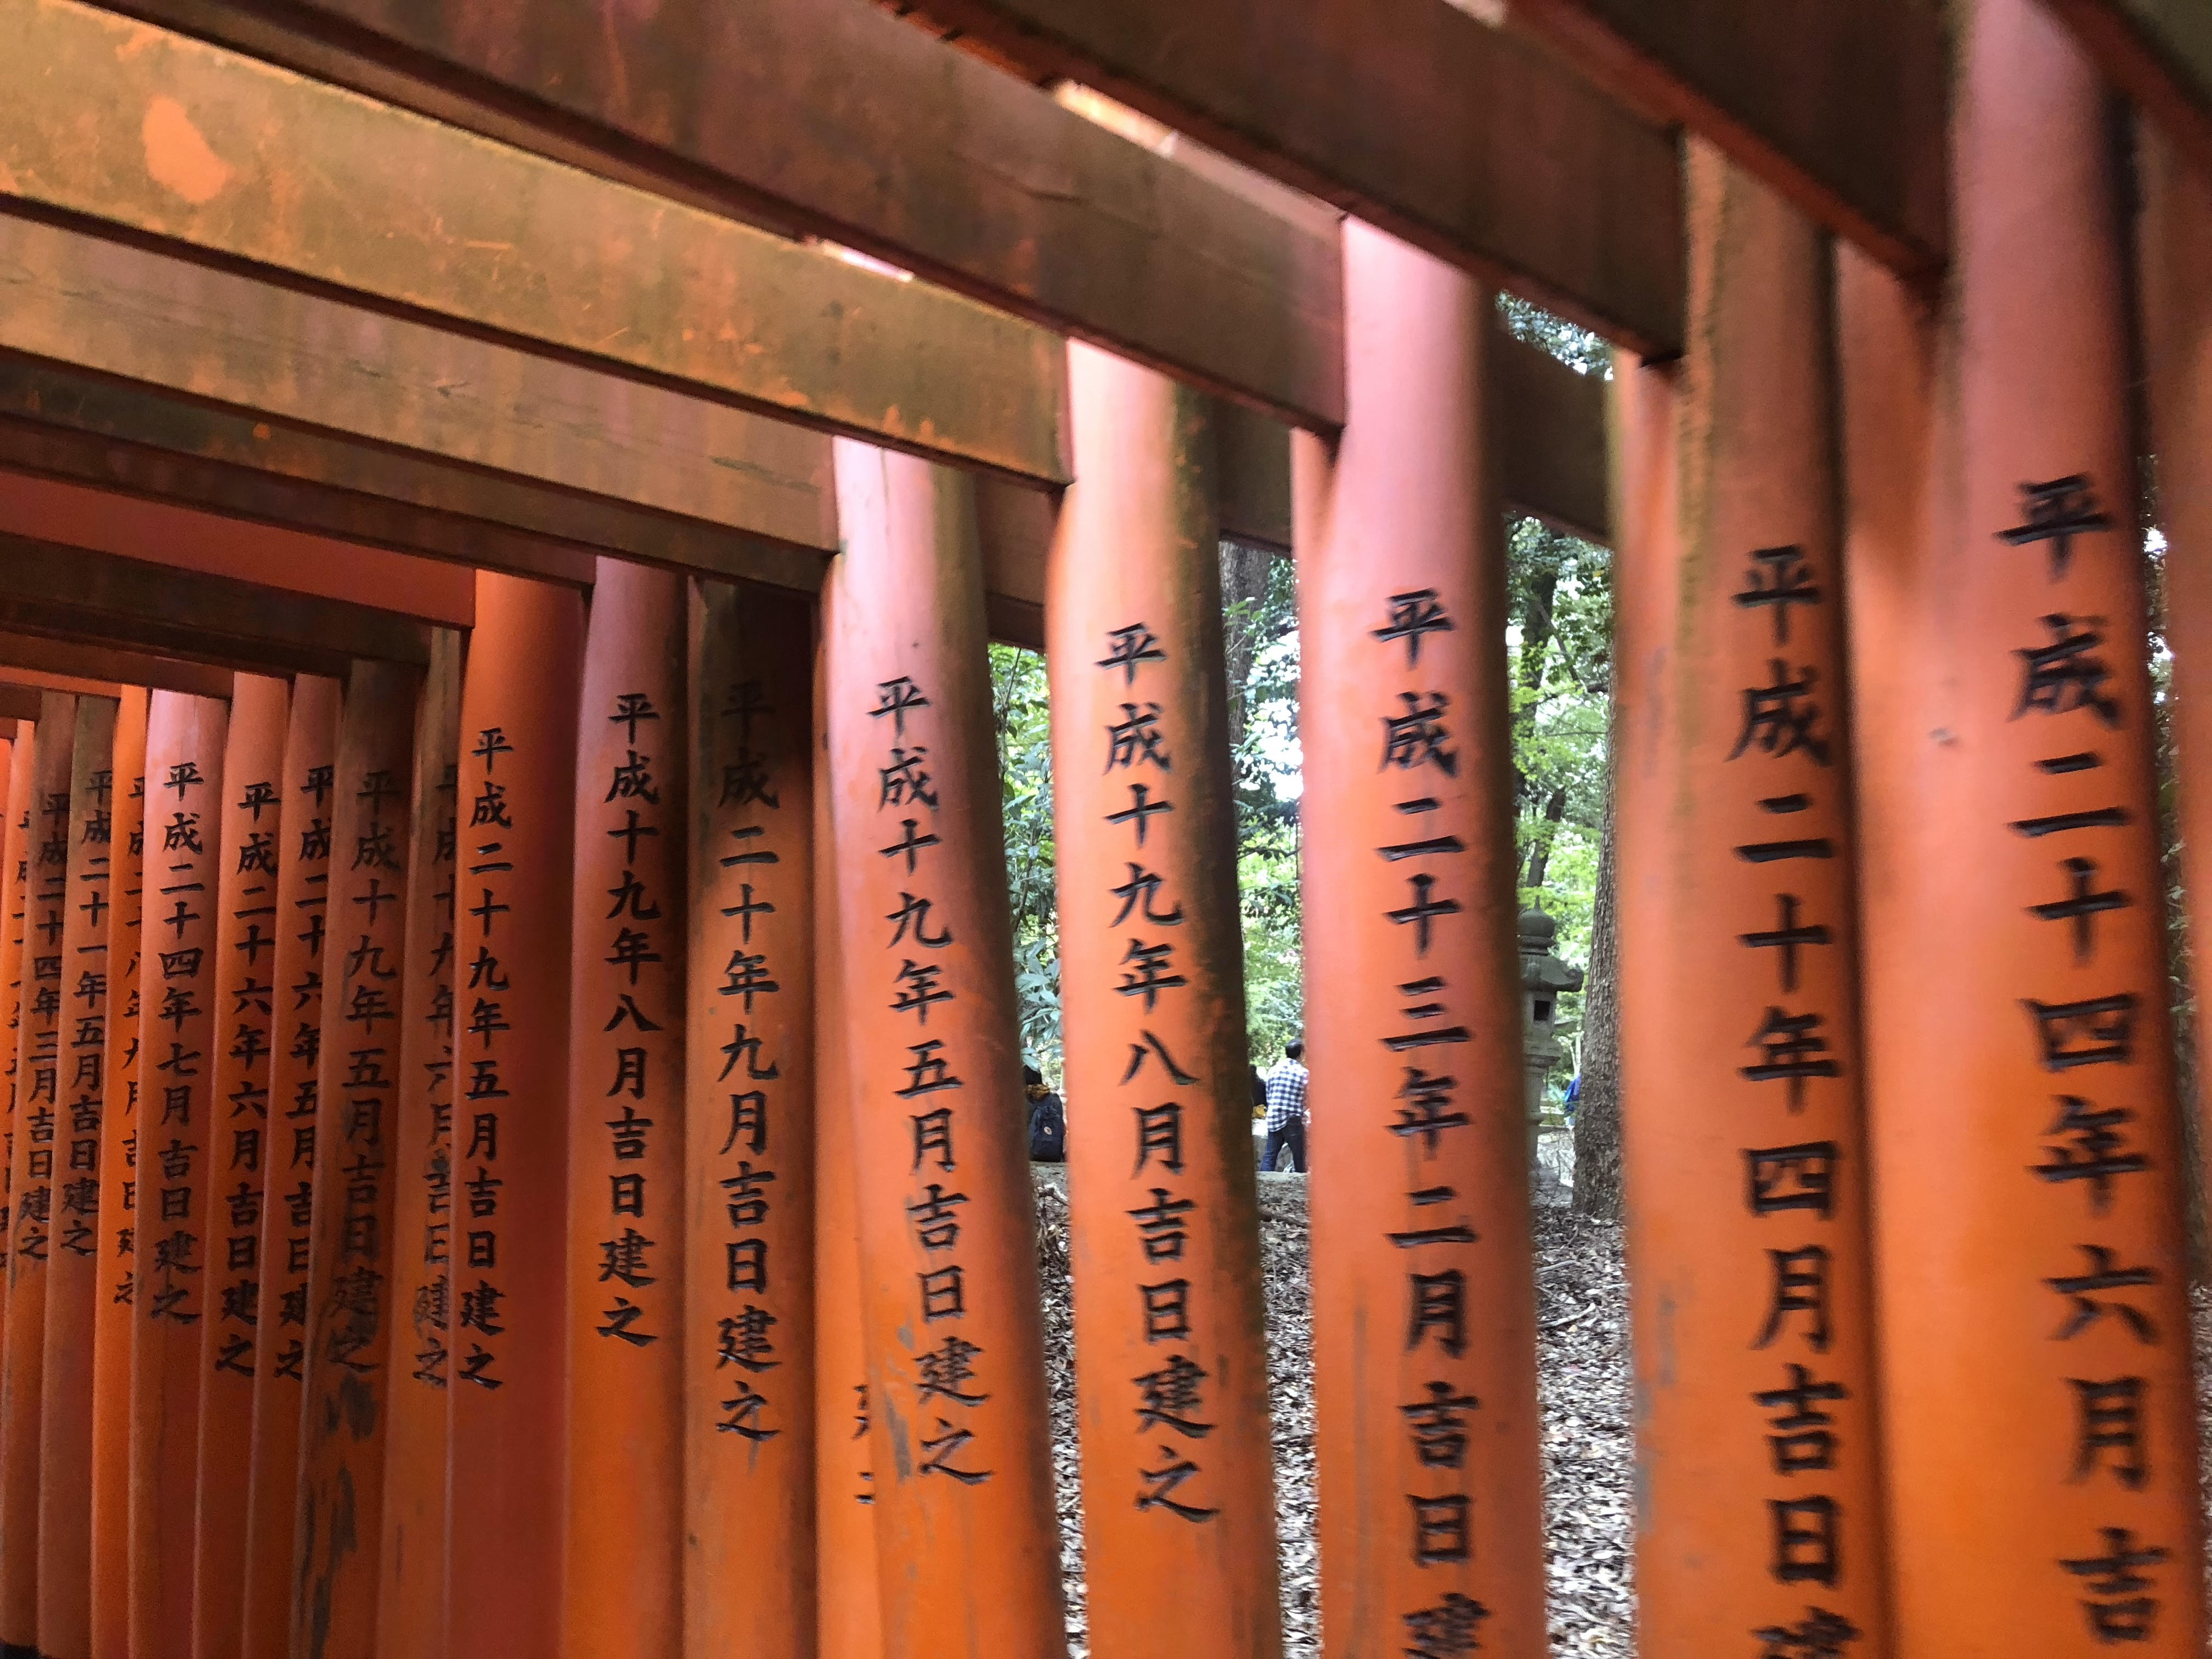 平成二十四年六月吉
平成二十年四月吉日建
平成二十三年二月吉日建
平成十九年八月吉日建之
平成十九年五月吉日建之
平成二十年九月吉日建之
平成十九年八月吉日建之
平成二十九年五月吉日建之
平成十九年六月吉日建之
平成十九年五月吉日建之
平成二十六年五月吉日建之
平成二十六年六月吉日建之
平成二十四年七月吉日建之
平成二十一年五月吉日建之
平成二十四年三月吉日建之